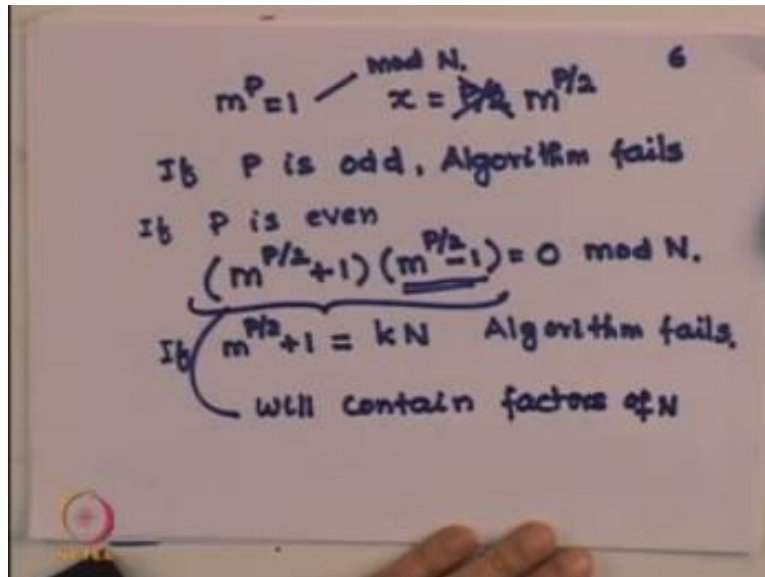 6
mod N.
m^P = 1 x = P/2 m^P/2
If P is odd, Algorithm fails
If P is even
(m^P/2 + 1) (m^P/2 - 1) = 0 mod N.
If m^P/2 + 1 = kN Algorithm fails.
Will contain factors of N
NPTEL